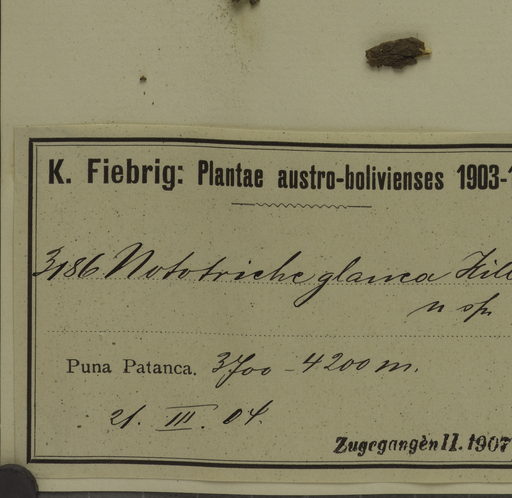 K. Fiebrig: Plantae austro-bolivienses 1903-1
3186. Nototriche glauca Hill
n sp.
Puna Patanca. 3700 - 4200 m.
21. III. 04.
Zugegangèn II. 1907